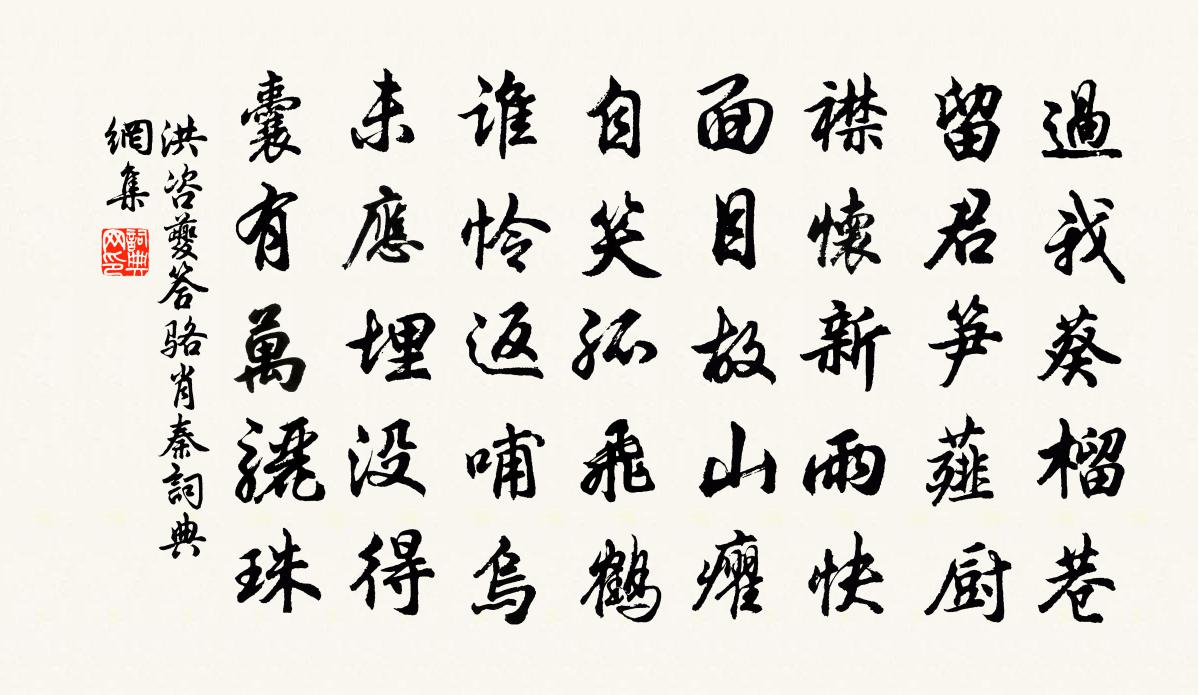 過我葵榴巷
留君笋薤厨
襟懷新雨快
面目故山癯
自笑孤飛鶴
誰怜返哺烏
未應埋没得
囊有萬驪珠
洪咨夔答骆肖秦詞典
網集
詞典网印